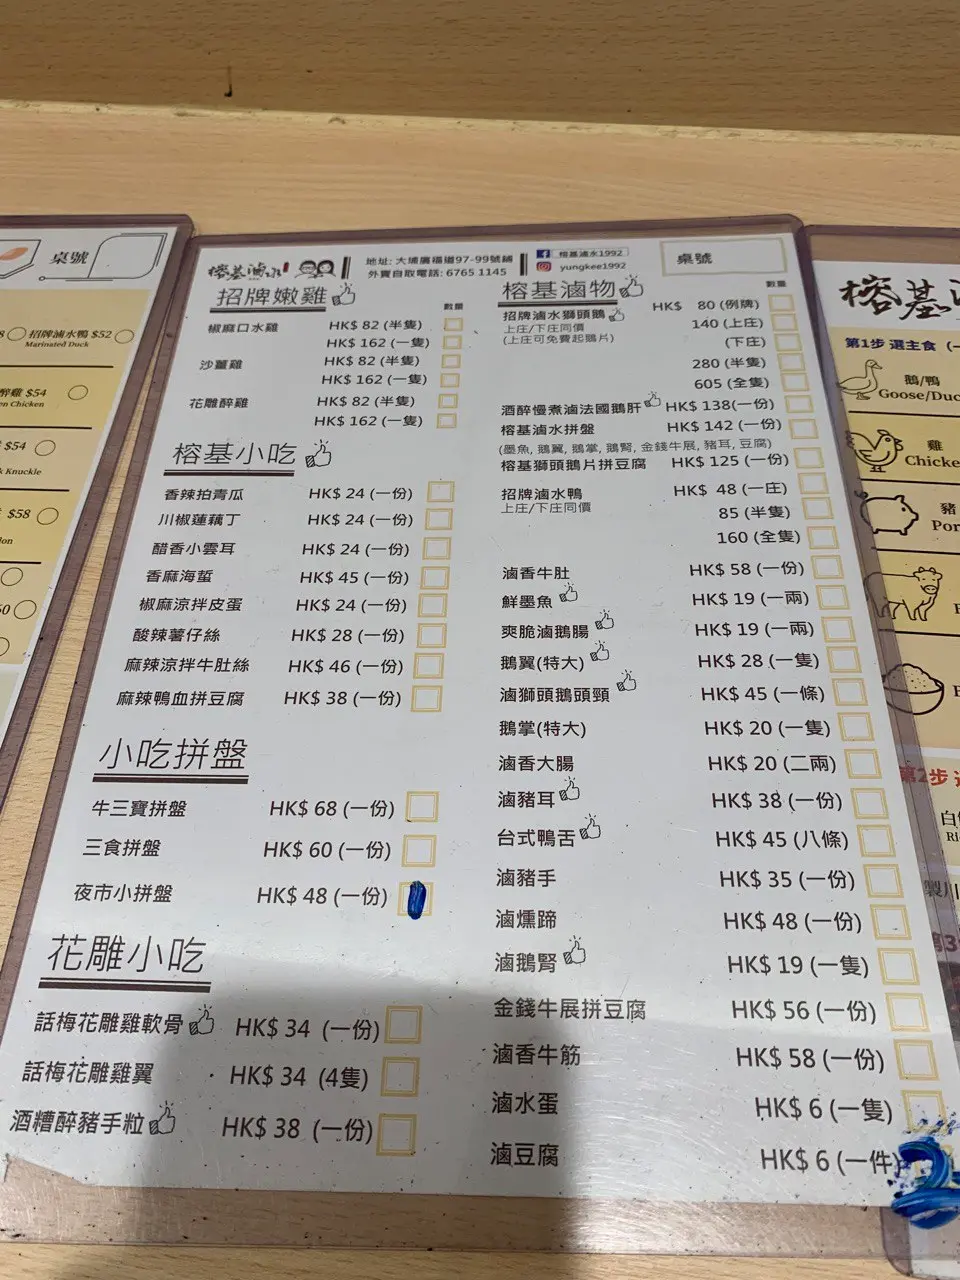 桌號
8 招牌滷水鴨 $52
Marinated Duck
醉雞 $54
en Chicken
$54
k Knuckle
$58
榕基滷水
地址: 大埔廣福道97-99號鋪
外賣自取電話: 6765 1145
榕基滷水1992
yungkee1992
桌號
招牌嫩雞
數量
椒麻口水雞 HK$ 82 (半隻)
HK$ 162 (一隻)
沙薑雞 HK$ 82 (半隻)
HK$ 162 (一隻)
花雕醉雞 HK$ 82 (半隻)
HK$ 162 (一隻)
榕基小吃
香辣拍青瓜 HK$ 24 (一份)
川椒蓮藕丁 HK$ 24 (一份)
醋香小雲耳 HK$ 24 (一份)
香麻海蜇 HK$ 45 (一份)
椒麻涼拌皮蛋 HK$ 24 (一份)
酸辣薯仔絲 HK$ 28 (一份)
麻辣涼拌牛肚絲 HK$ 46 (一份)
麻辣鴨血拼豆腐 HK$ 38 (一份)
小吃拼盤
牛三寶拼盤 HK$ 68 (一份)
三食拼盤 HK$ 60 (一份)
夜市小拼盤 HK$ 48 (一份)
花雕小吃
話梅花雕雞軟骨 HK$ 34 (一份)
話梅花雕雞翼 HK$ 34 (4隻)
酒糟醉豬手粒 HK$ 38 (一份)
榕基滷物
數量
招牌滷水獅頭鵝 HK$ 80 (例牌)
上庄/下庄同價 140 (上庄)
(上庄可免費起鵝片) (下庄)
280 (半隻)
605 (全隻)
酒醉慢煮滷法國鵝肝 HK$ 138(一份)
榕基滷水拼盤 HK$ 142 (一份)
(墨魚, 鵝翼, 鵝掌, 鵝腎, 金錢牛展, 豬耳, 豆腐)
榕基獅頭鵝片拼豆腐 HK$ 125 (一份)
招牌滷水鴨 HK$ 48 (一庄)
上庄/下庄同價 85 (半隻)
160 (全隻)
滷香牛肚 HK$ 58 (一份)
鮮墨魚 HK$ 19 (一兩)
爽脆滷鵝腸 HK$ 19 (一兩)
鵝翼(特大) HK$ 28 (一隻)
滷獅頭鵝頭頸 HK$ 45 (一條)
鵝掌(特大) HK$ 20 (一隻)
滷香大腸 HK$ 20 (二兩)
滷豬耳 HK$ 38 (一份)
台式鴨舌 HK$ 45 (八條)
滷豬手 HK$ 35 (一份)
滷燻蹄 HK$ 48 (一份)
滷鵝腎 HK$ 19 (一隻)
金錢牛展拼豆腐 HK$ 56 (一份)
滷香牛筋 HK$ 58 (一份)
滷水蛋 HK$ 6 (一隻)
滷豆腐 HK$ 6 (一件)
2
榕基
第1步 選主食
鵝/鴨
Goose/Duc
雞
Chicke
豬
Por
第2步
白
製川
第3